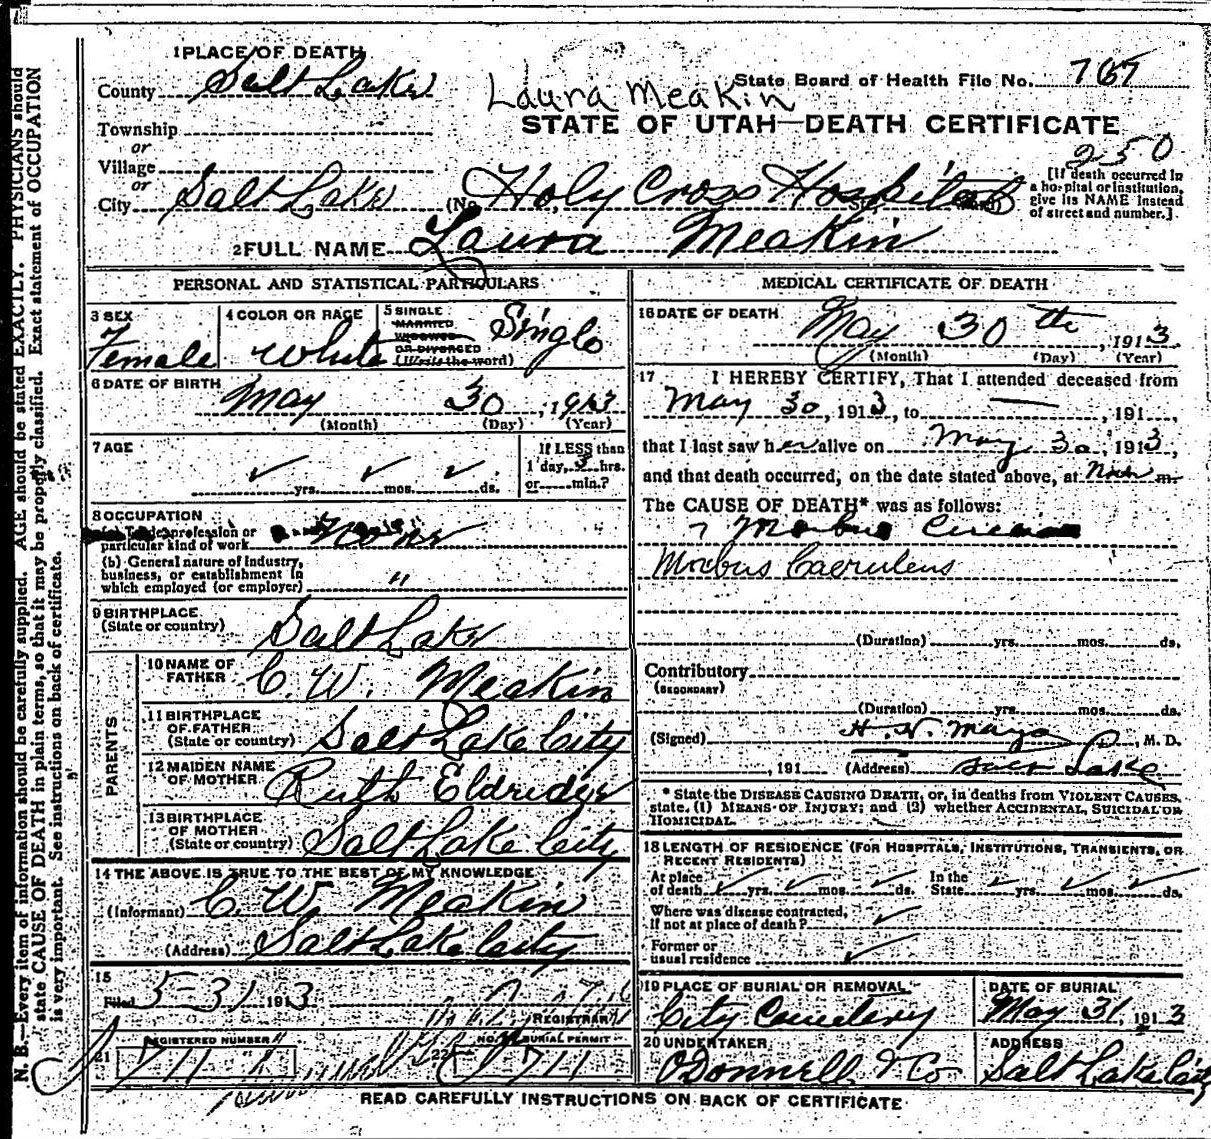 1 PLACE OF DEATH
County Salt Lake
State Board of Health File No. 767
Laura Meakin
Township
STATE OF UTAH—DEATH CERTIFICATE
or
Village
250
or
City Salt Lake (No. Holy Cross Hospital
[If death occurred in a hospital or institution, give its NAME instead of street and number.]
2 FULL NAME Laura Meakin
PERSONAL AND STATISTICAL PARTICULARS
3 SEX Female
4 COLOR OR RACE White
5 SINGLE MARRIED WIDOWED OR DIVORCED (Write the word) Single
6 DATE OF BIRTH
May 30, 1913
(Month) (Day) (Year)
7 AGE
yrs. mos. ds.
If LESS than 1 day, 3 hrs. or min.?
8 OCCUPATION
(a) Trade, profession or particular kind of work None
(b) General nature of industry, business, or establishment in which employed (or employer) "
9 BIRTHPLACE
(State or country) Salt Lake
PARENTS
10 NAME OF FATHER C. W. Meakin
11 BIRTHPLACE OF FATHER (State or country) Salt Lake City
12 MAIDEN NAME OF MOTHER Ruth Eldredge
13 BIRTHPLACE OF MOTHER (State or country) Salt Lake City
14 THE ABOVE IS TRUE TO THE BEST OF MY KNOWLEDGE
(Informant) C. W. Meakin
(Address) Salt Lake City
15
Filed 5-31 1913
REGISTRAR
21 REGISTERED NUMBER 711
22 NO. BURIAL PERMIT 711
MEDICAL CERTIFICATE OF DEATH
16 DATE OF DEATH May 30th, 1913
(Month) (Day) (Year)
17 I HEREBY CERTIFY, That I attended deceased from
May 30, 1913, to —, 191
that I last saw her alive on May 30, 1913,
and that death occurred, on the date stated above, at Noon m.
The CAUSE OF DEATH* was as follows:
Morbus
Morbus Caeruleus
(Duration) yrs. mos. ds.
Contributory
(SECONDARY)
(Duration) yrs. mos. ds.
(Signed) H. N. Mayo, M. D.
, 191 (Address) Salt Lake
* State the DISEASE CAUSING DEATH, or, in deaths from VIOLENT CAUSES, state, (1) MEANS OF INJURY; and (2) whether ACCIDENTAL, SUICIDAL OR HOMICIDAL.
18 LENGTH OF RESIDENCE (FOR HOSPITALS, INSTITUTIONS, TRANSIENTS, OR RECENT RESIDENTS)
At place of death yrs. mos. ds. In the State yrs. mos. ds.
Where was disease contracted, if not at place of death?
Former or usual residence
19 PLACE OF BURIAL OR REMOVAL City Cemetery
DATE OF BURIAL May 31, 1913
20 UNDERTAKER O'Donnell & Co
ADDRESS Salt Lake City
READ CAREFULLY INSTRUCTIONS ON BACK OF CERTIFICATE
N. B.—Every item of information should be carefully supplied. AGE should be stated EXACTLY. PHYSICIANS should
state CAUSE OF DEATH in plain terms, so that it may be properly classified. Exact statement of OCCUPATION
is very important. See instructions on back of certificate.